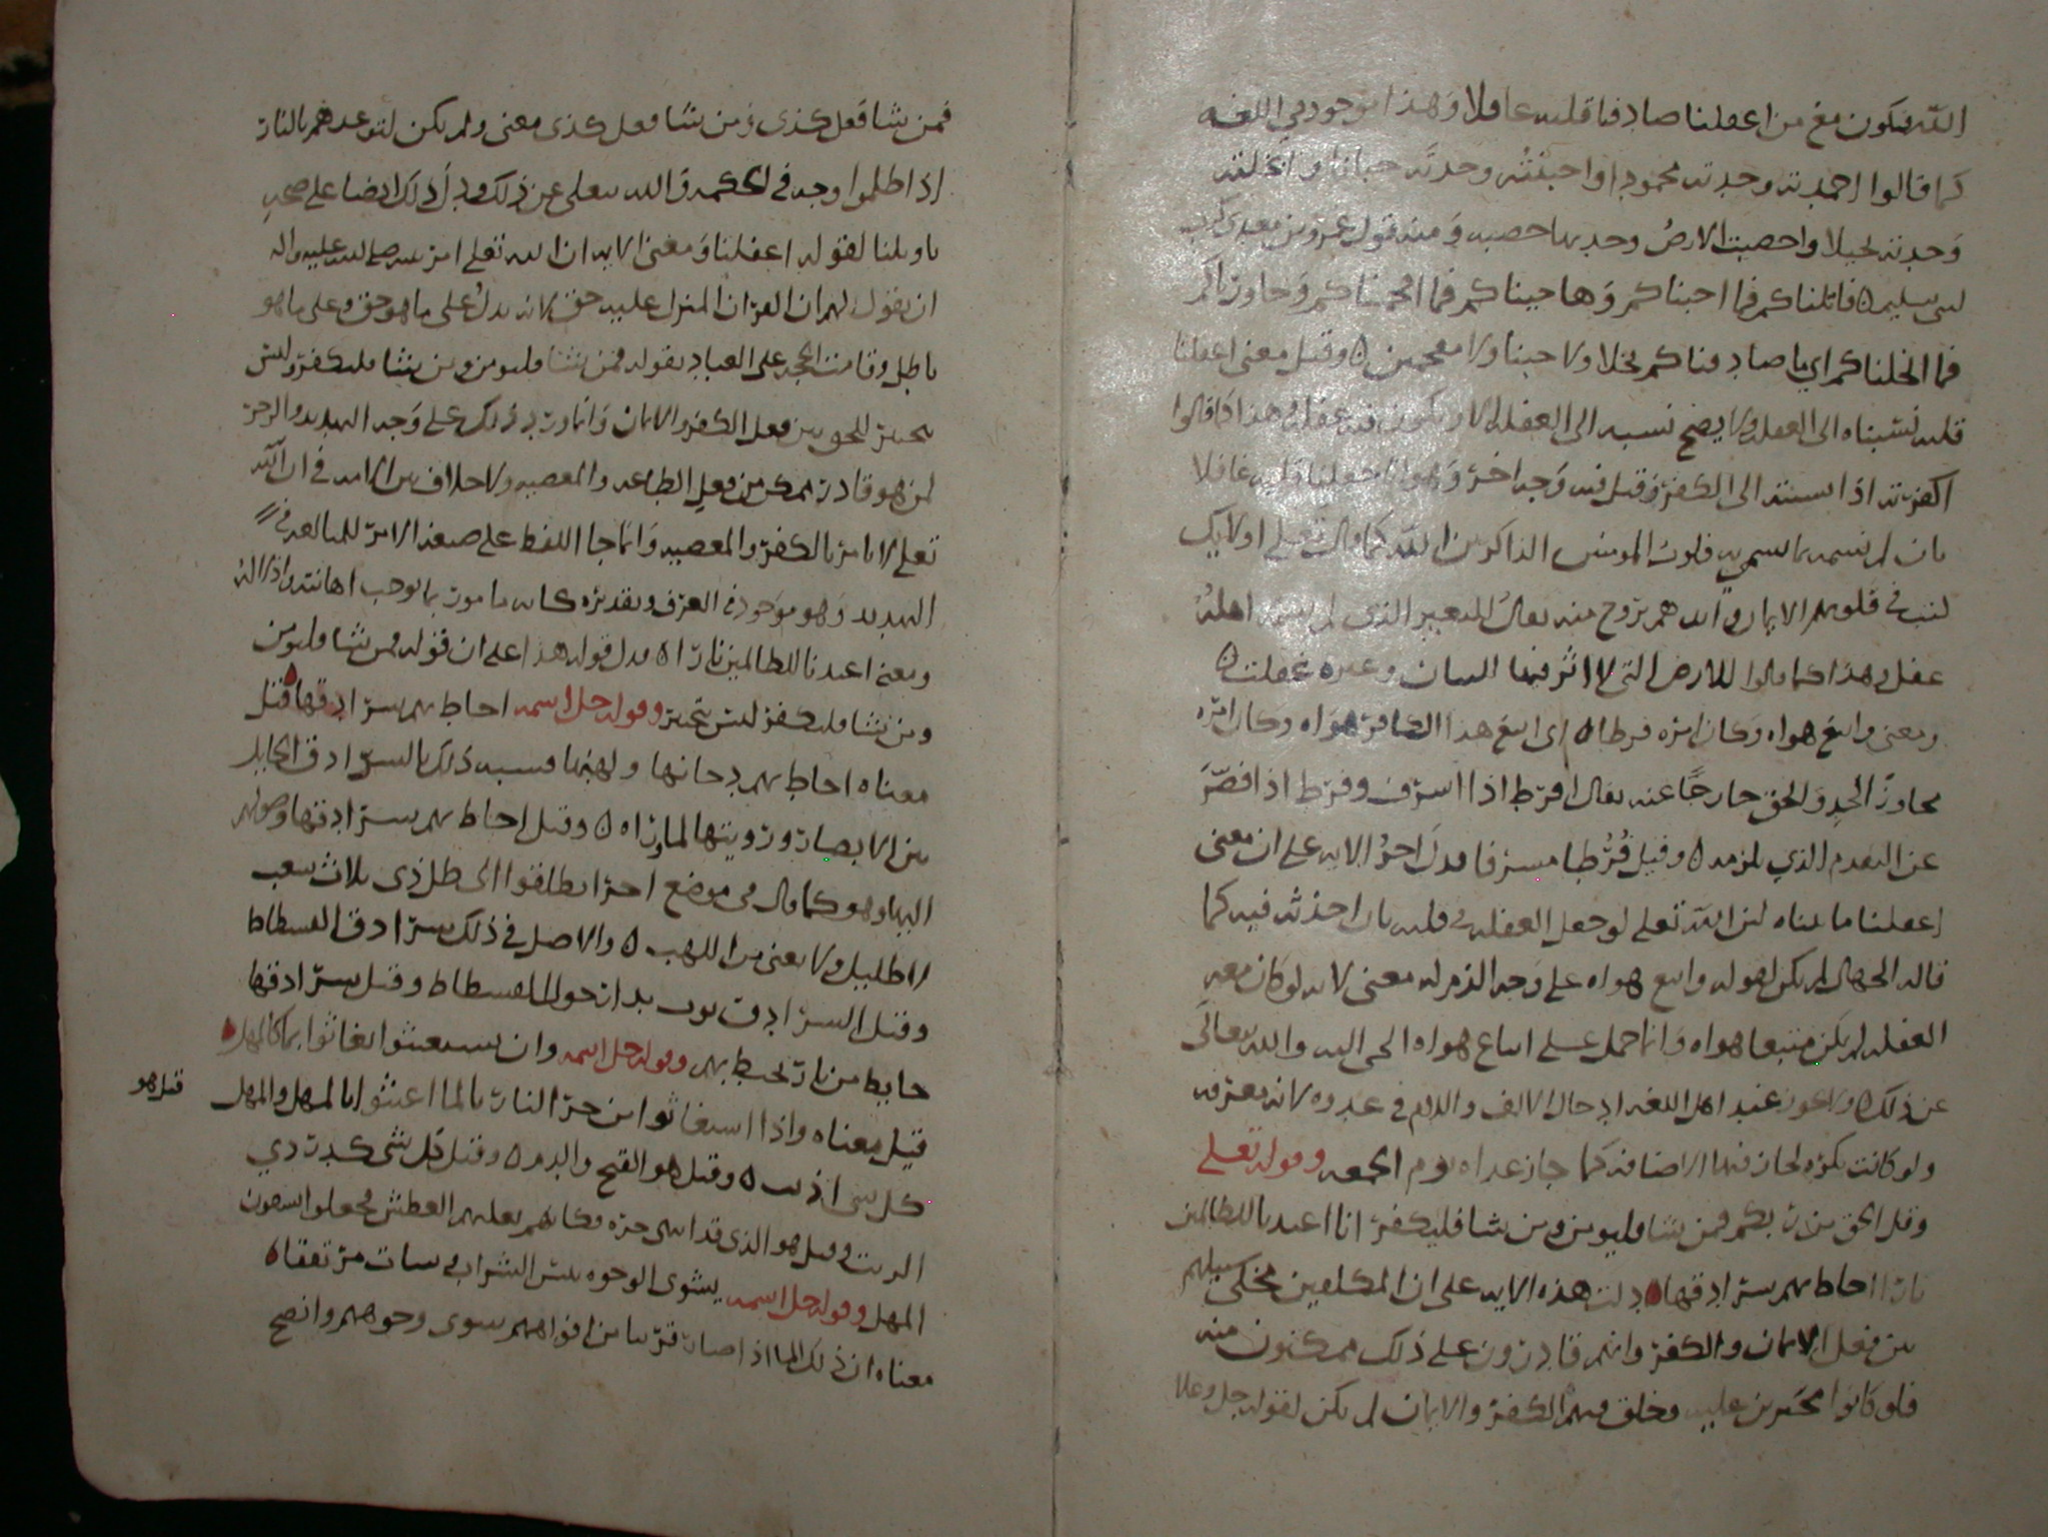 الله فيكون مع من اغفلنا صادفنا قلبه غافلا وهذا موجود في اللغه
كما قالوا احمدته وجدته محمودا واجبنته وجدته جبانا وابخلته
وجدته بخيلا واخصبت الارض وجدتها خصبه ومنه قول عمرو بن معدي كرب
لبني سليم ه قاتلناكم فما اجبناكم وهاجيناكم فما افحمناكم وحاورناكم
فما ابخلناكم اي ما صادفناكم بخلا ولا جبنا ولا مفحمين ه وقيل معنى اغفلنا
قلبه نسبناه الى الغفله ولا يصح نسبه الى الغفله الا وتكون فيه غفله وهذا كما قالوا
اكفرته اذا نسبته الى الكفر وقيل فيه وجه اخر وهو انا جعلنا قلبه غافلا
بان لم نسمه بما نسم به قلوب المومنين الذاكرين الله كما قال تعلى اولايك
كتب في قلوبهم الايمان وايدهم بروح منه يقال للبعير الذي لم يسمه اهله
غفل وهذا كما قالوا للارض التي لا اثر فيها للبنيان وغيره غفلت ه
ومعنى واتبع هواه وكان امره فرطا ه اي اتبع هذا الكافر هواه وكان امره
مجاوز الحد والحق خارجا عنه يقال افرط اذا اسرف وفرط اذا قصر
عن التقدم الذي يلزمه ه وقيل فرطا مسرفا فدل اخر الايه على ان معنى
اغفلنا ما بيناه لان الله تعلى لو جعل الغفله في قلبه بان احدث فيه كما
قاله الجهال لم يكن لقوله واتبع هواه على وجه الذم له معنى لانه لو كان معه
الغفله لم يكن متبعا هواه وانما حمل على اتباع هواه الجي اليه والله يتعالى
عن ذلك ولا يجوز عند اهل اللغه ادخال الالف واللام في غدوه لانه معرفه
ولو كانت نكره لجاز فيها الاضافه كما جاز غداه يوم الجمعه وقوله تعلى
وقل الحق من ربكم فمن شا فليومن ومن شا فليكفر انا اعتدنا للظالمين
نارا احاط بهم سرادقها ه دلت هذه الايه على ان المكلفين مخلى سبيلهم
بين فعل الايمان والكفر وانهم قادرون على ذلك ممكنون منه
فلو كانوا مجبرين عليه وخلق فيهم الكفر والايمان لم يكن لقوله جل وعلا
فمن شا فعل كذى ومن شا فعل كذى معنى ولم يكن لتوعدهم بالنار
اذا ظلموا وجه في الحكمه والله يتعلى عن ذلك ودل ذلك ايضا على صحه
تاويلنا لقوله اغفلنا ومعنى الايه ان الله تعلى امر نبيه صلى الله عليه واله
ان يقول لهم ان القران المنزل عليه حق لانه يدل على ما هو حق وعلى ما هو
باطل وقامت الحجه على العباد بقوله فمن شا فليومن ومن شا فليكفر وليس
تخيير للخلق بين فعل الكفر والايمان وانما ورد ذلك على وجه التهديد والزجر
لمن هو قادر ممكن من فعل الطاعه والمعصيه ولا خلاف بين الامه في ان الله
تعلى لا يامر بالكفر والمعصيه وانما جا اللفظ على صيغه الامر للمبالغه في
التهديد وهو موجود في العرف وتقديره كانه مامور بما يوجب اهانته واذلاله
ومعنى اعتدنا للظالمين نارا ه فدل قوله هذا على ان قوله فمن شا فليومن
ومن شا فليكفر ليس بتخيير وقوله جل اسمه احاط بهم سرادقها ه قيل
معناه احاط بهم دخانها ولهبها فشبه ذلك بالسرادق الحايل
بين الابصار ورويتها لما وراه ه وقيل احاط بهم سرادقها وصولهم
اليها وهو كما قال في موضع اخر انطلقوا الى ظل ذي ثلاث شعب
لا ظليل ولا يغني من اللهب ه والاصل في ذلك سرادق الفسطاط
وقيل السرادق ثوب يدار حول الفسطاط وقيل سرادقها
حايط من نار تحيط بهم وقوله جل اسمه وان يستغيثوا يغاثوا بما كالمهل ه
قيل معناه واذا استغاثوا من حر النار بالما اغيثوا بالمهل والمهل قيل هو
كل شي اذيب ه وقيل هو القيح والدم ه وقيل كل شي كدردي
الزيت وقيل هو الذي قد انتهى حره فكانهم يغلبهم العطش فجعلوا يسقون
المهل وقوله جل اسمه يشوى الوجوه بيس الشراب وسات مرتفقا ه
معناه ان ذلك الما اذا صار قريبا من افواههم شوى وجوههم وانضج